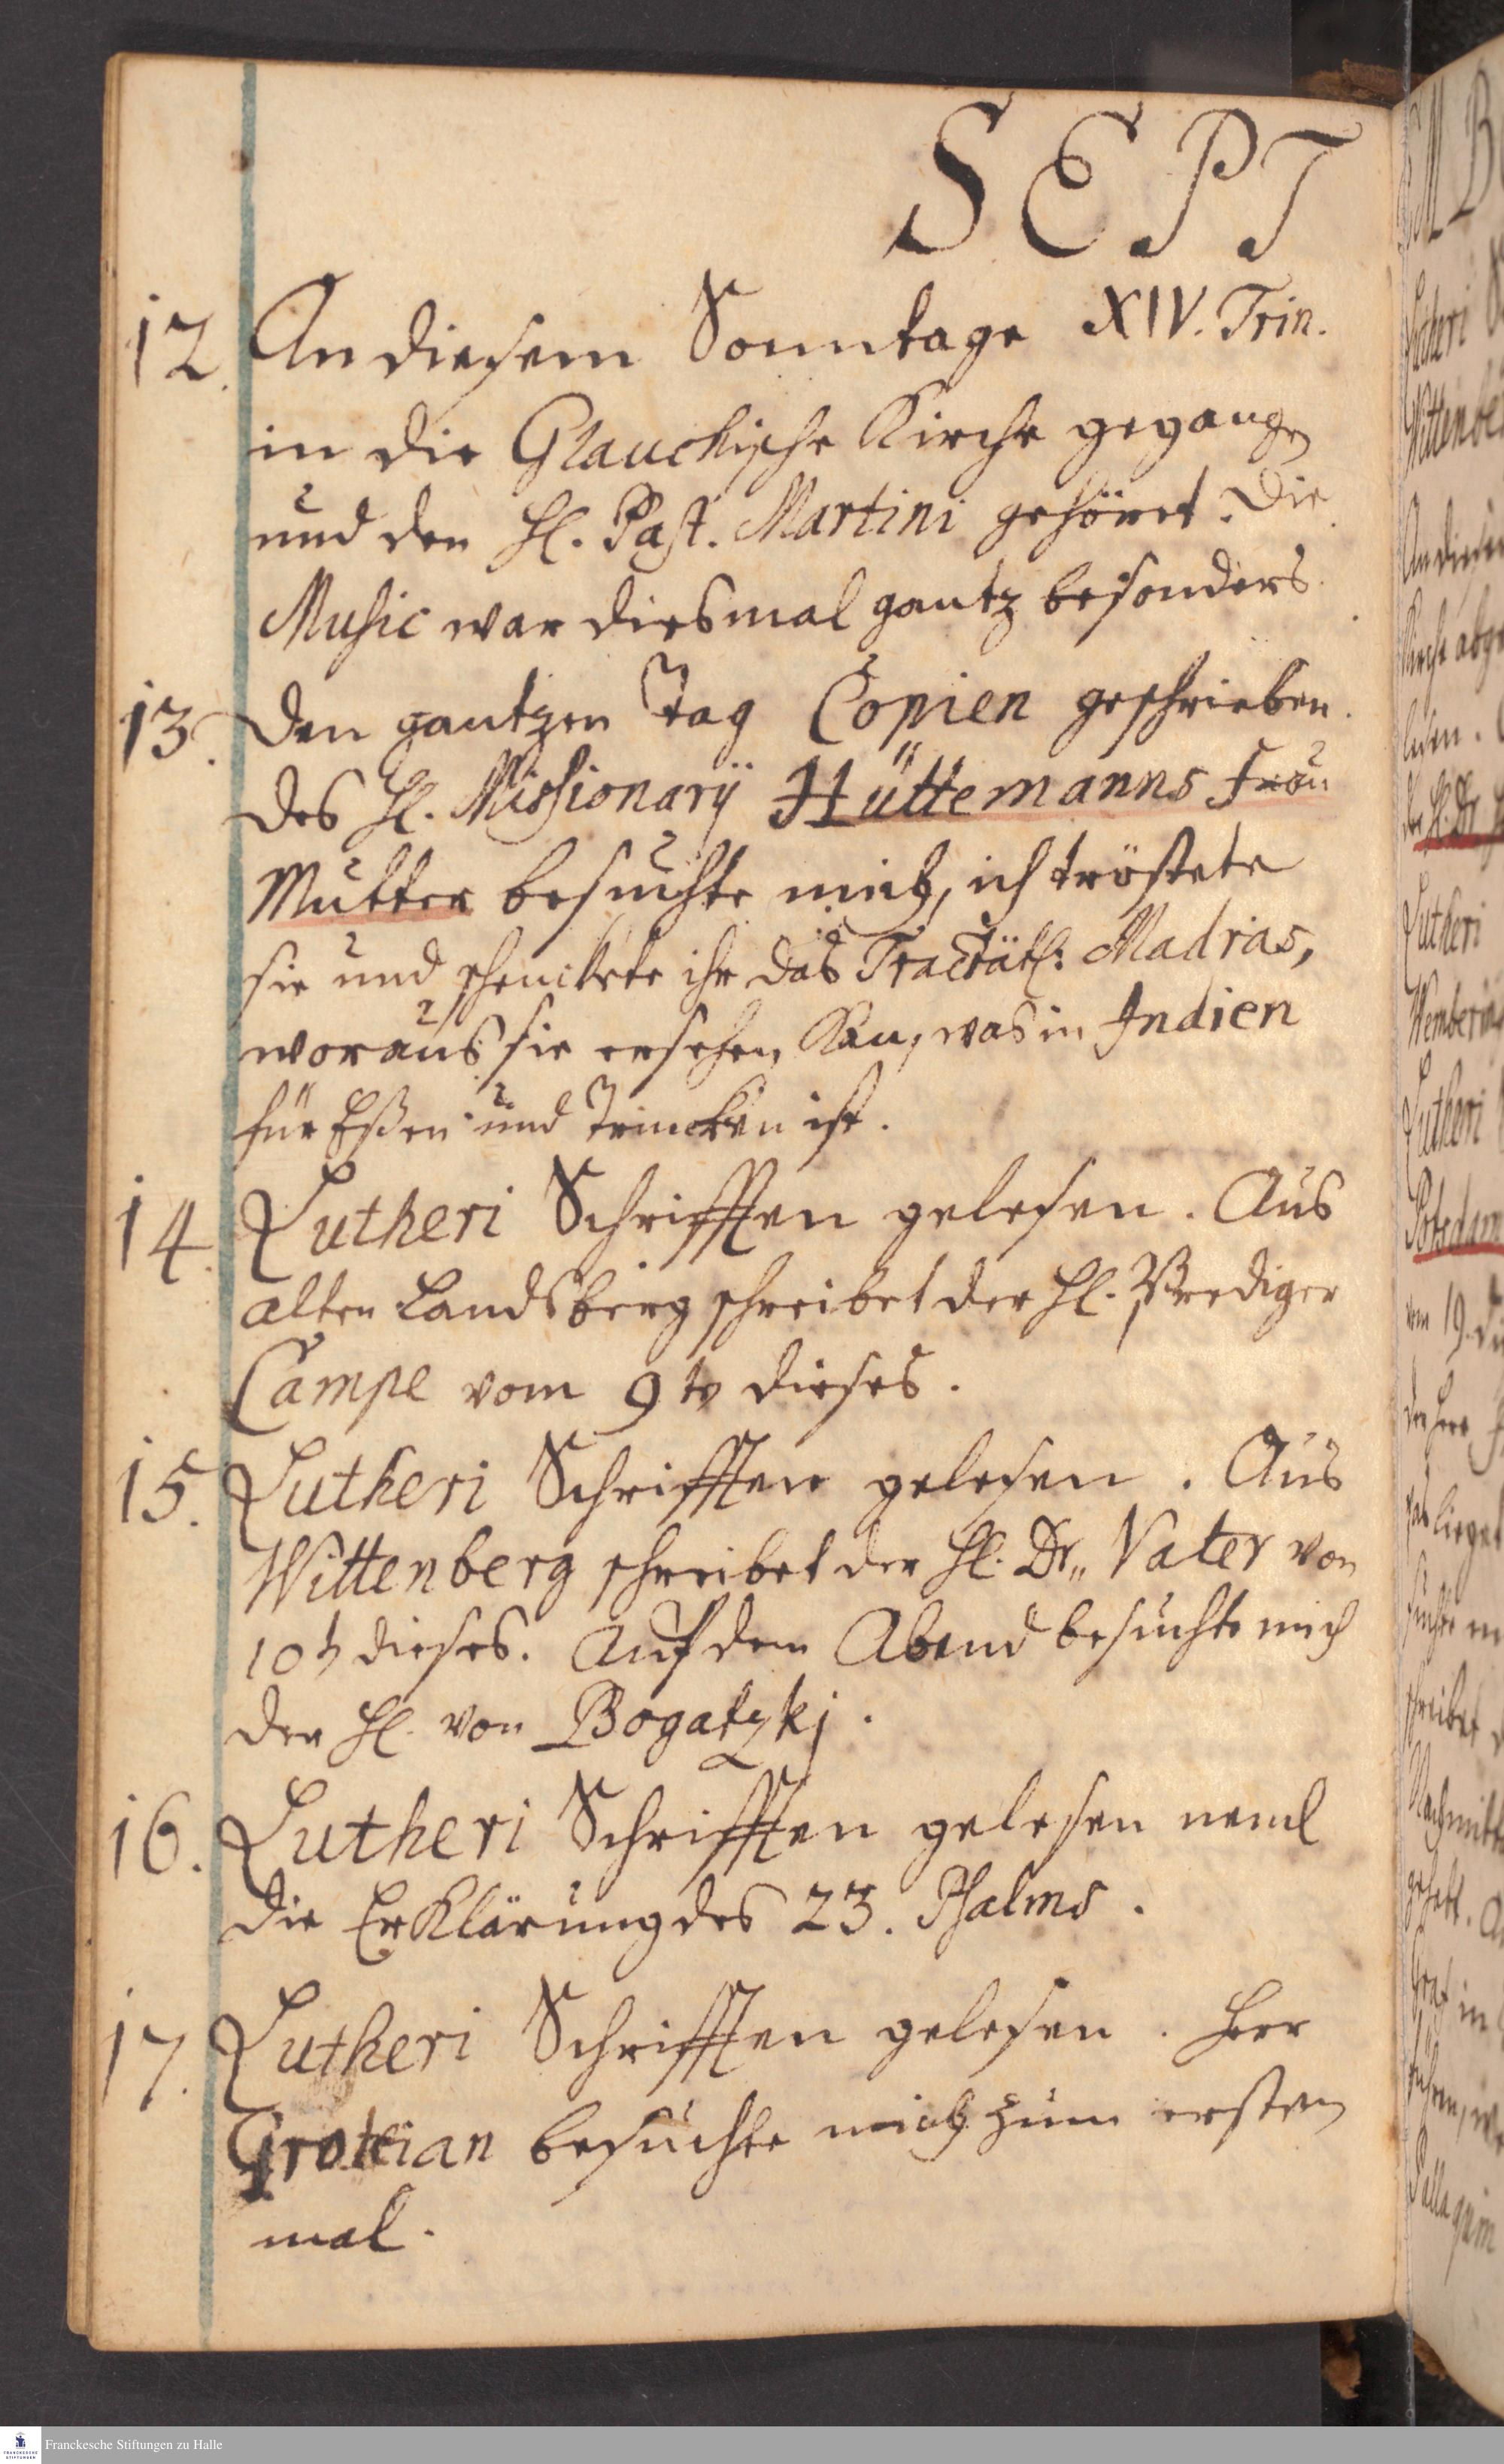 SEPT
12. An diesem Sonntage XIV. Trin.
in die Glauchische Kirche gegangen
und den H. Past. Martini gehöret. Die
Music war diesmal gantz besonders.
13. Den gantzen Tag Copien geschrieben.
des H. Missionarij Hüttemanns Frau
Mutter besuchte mich, ich tröstete
sie und schenckete ihr das Tractätl: Madras,
woraus sie ersehen kan, was in Indien
für Eßen und Trincken ist.
14. Lutheri Schrifften gelesen. Aus
alten Landsberg schreibet der H. Prediger
Campe vom 9 tn dieses.
15. Lutheri Schrifften gelesen. Aus
Wittenberg schreibet der H. Dr. Vater von
10 t dieses. Auf dem Abend besuchte mich
der H. von Bogatzkj.
16. Lutheri Schrifften gelesen neml
die Erklärung des 23. Psalms.
17. Lutheri Schrifften gelesen. Herr
Grotian besuchte mich zum ersten
mal.
Franckesche Stiftungen zu Halle